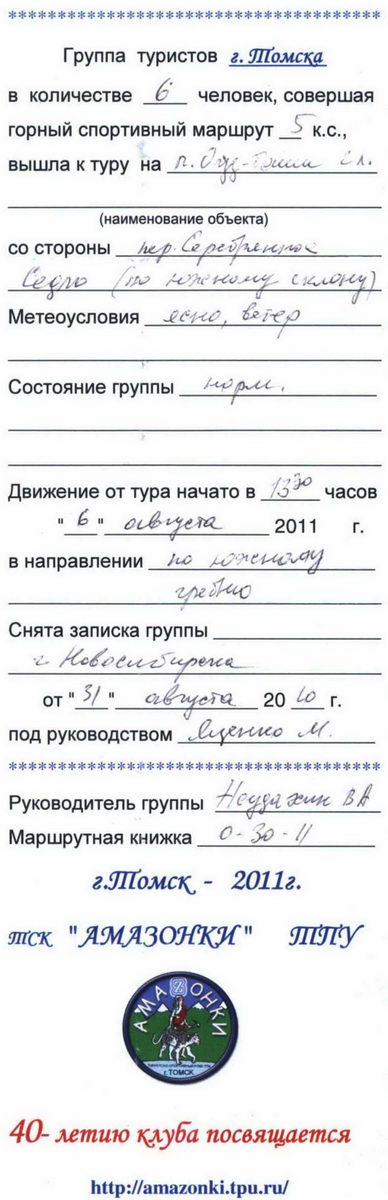 ****************************************
Группа туристов г. Томска
в количестве 6 человек, совершая
горный спортивный маршрут 5 к.с.,
вышла к туру на п. Огуз-Баши гл.
(наименование объекта)
со стороны пер. Серебрянное
Седло (по южному склону)
Метеоусловия ясно, ветер
Состояние группы норм.
Движение от тура начато в 13 30 часов
"6" августа 2011 г.
в направлении по южному
гребню
Снята записка группы
г Новосибирска
от "31" августа 2010 г.
под руководством Яценко М.
****************************************
Руководитель группы Неудахин ВА
Маршрутная книжка 0-30-11
г.Томск - 2011г.
ТСК "АМАЗОНКИ" ТПУ
АМАЗОНКИ
г. ТОМСК
40- летию клуба посвящается
http://amazonki.tpu.ru/